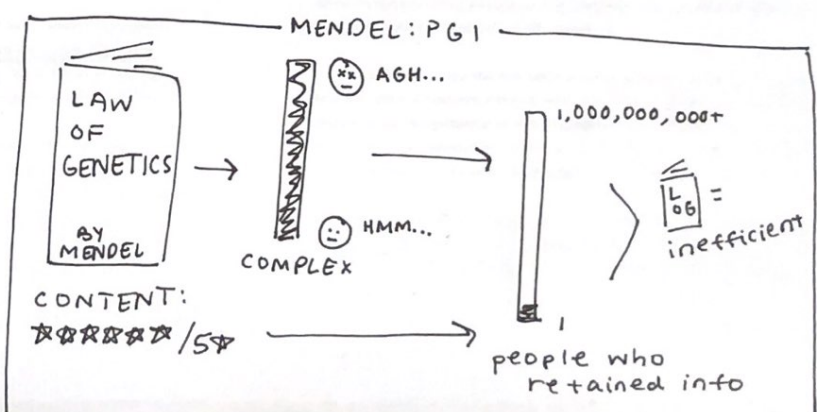 MENDEL: PG 1
LAW
OF
GENETICS
BY
MENDEL
AGH...
HMM...
COMPLEX
1,000,000,000+
1
L
OG
=
inefficient
CONTENT:
☆☆☆☆☆☆/5☆
people who
retained info